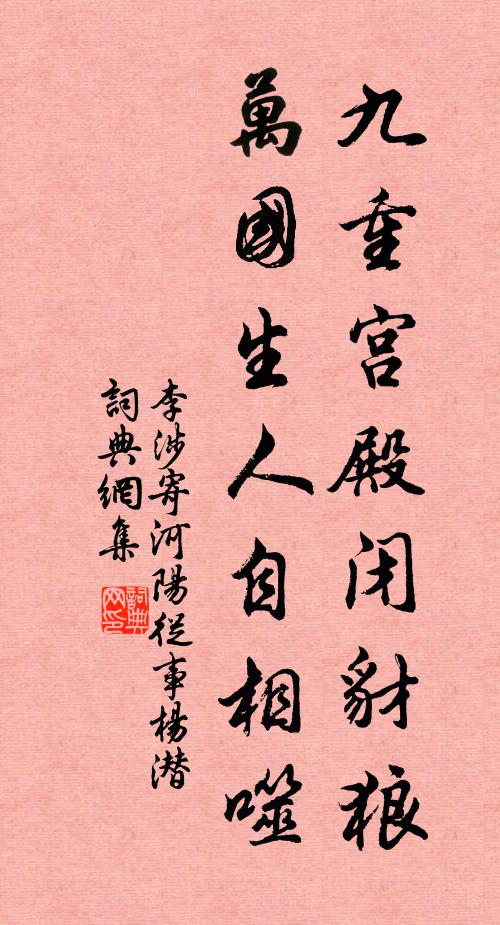 九重宫殿闭豺狼
萬國生人自相噬
李涉寄河陽從事楊潜
詞典網集
詞典网印